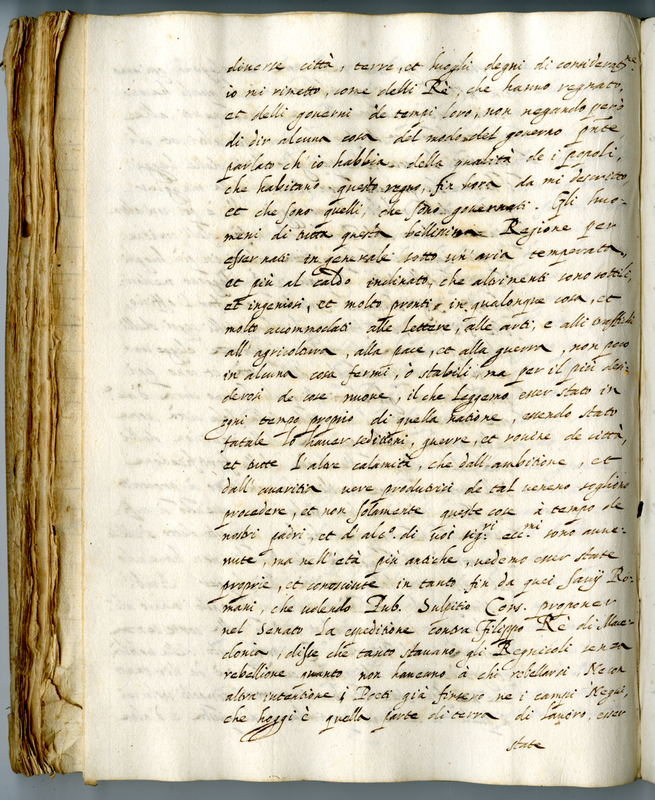 diverse città, terre, et luoghi degni di considerat.ne
io mi rimetto, come delli Rè, che hanno regnato,
et delli governi de tempi loro, non negando però
di dir alcuna cosa del modo del governo pnte,
parlato ch'io habbia della qualità de i popoli,
che habitano questo regno, fin hora da mi descritto,
et che sono quelli, che sono governati. Gli huo-
meni di tutta questa bellissima Regione per
esser nati in generale sotto un'aria temperata,
et più al caldo inclinato, che altrimenti sono sottili,
et ingeniosi, et molto pronti, in qualonque cosa, et
molto accommodati alle lettere, alle arti, e alli traffichi
all'agricoltura, alla pace, et alla guerra, non però
in alcuna cosa fermi, ò stabili, ma per il più desi-
derosi de cose nuove, il che leggemo esser stato in
ogni tempo proprio di quella natione, essendo stato
fatale lo haver seditioni, guerre, et rovine de città,
et tutte l'altre calamità, che dall'ambitione, et
dall'avaritia vere produtrici de tal veneno sogliono
procedere, et non solamente queste cose à tempo de
nostri padri, et d'alc.o di voi sig.ri ecc.mi sono avve-
nute, ma nell'età più antiche, vedemo esser state
proprie, et conosciute in tanto fin da quei Savij Ro-
mani, che volendo Pub. Sulpitio Cons. proponer
nel Senato la espeditione contra Filippo Rè di Mace-
donia, disse che tanto stavano gli Regnicoli senza
rebellione quanto non havevano à chi rebellarsi Ne con
altra intentione i Poeti già finsero ne i campi
che hoggi è quella parte di terra di lavoro, esser
state